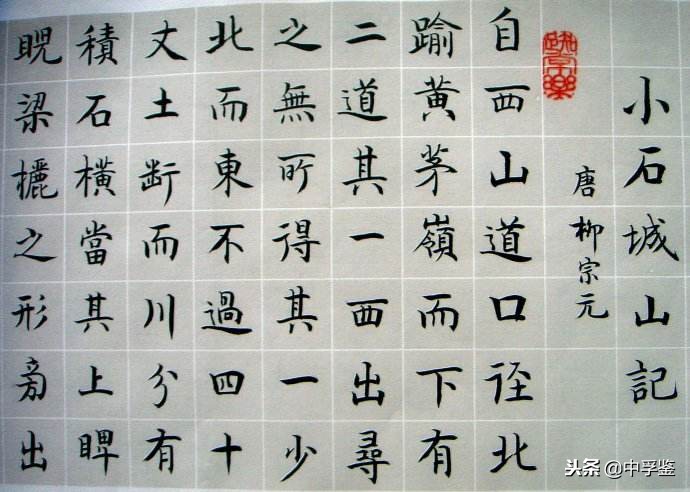 小石城山記
唐柳宗元
自西山道口径北
踰黄茅嶺而下有
二道其一西出尋
之無所得其一少
北而東不過四十
丈土断而川分有
積石横當其上睥
睨梁欐之形旁出
头条 @中孚鉴